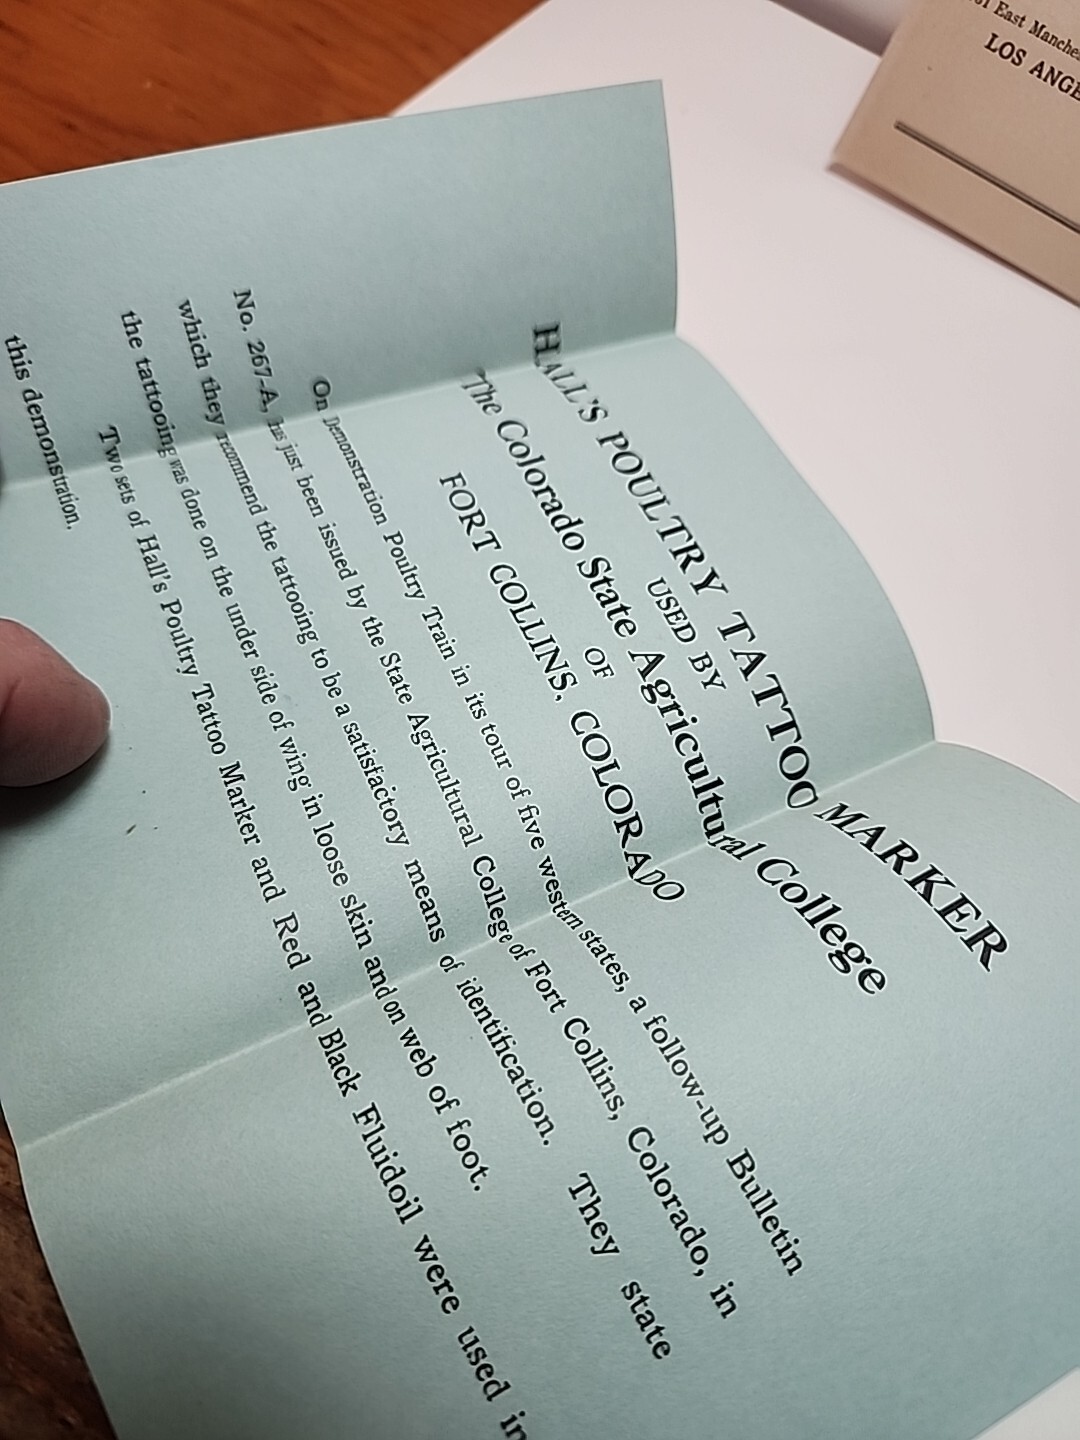 HALL'S POULTRY TATTOO MARKER
USED BY
The Colorado State Agricultural College
OF
FORT COLLINS, COLORADO
On Demonstration Poultry Train in its tour of five western states, a follow-up Bulletin
No. 267-A, has just been issued by the State Agricultural College of Fort Collins, Colorado, in
which they recommend the tattooing to be a satisfactory means of identification. They state
the tattooing was done on the under side of wing in loose skin and on web of foot.
Two sets of Hall's Poultry Tattoo Marker and Red and Black Fluidoil were used in
this demonstration.
East
LOS